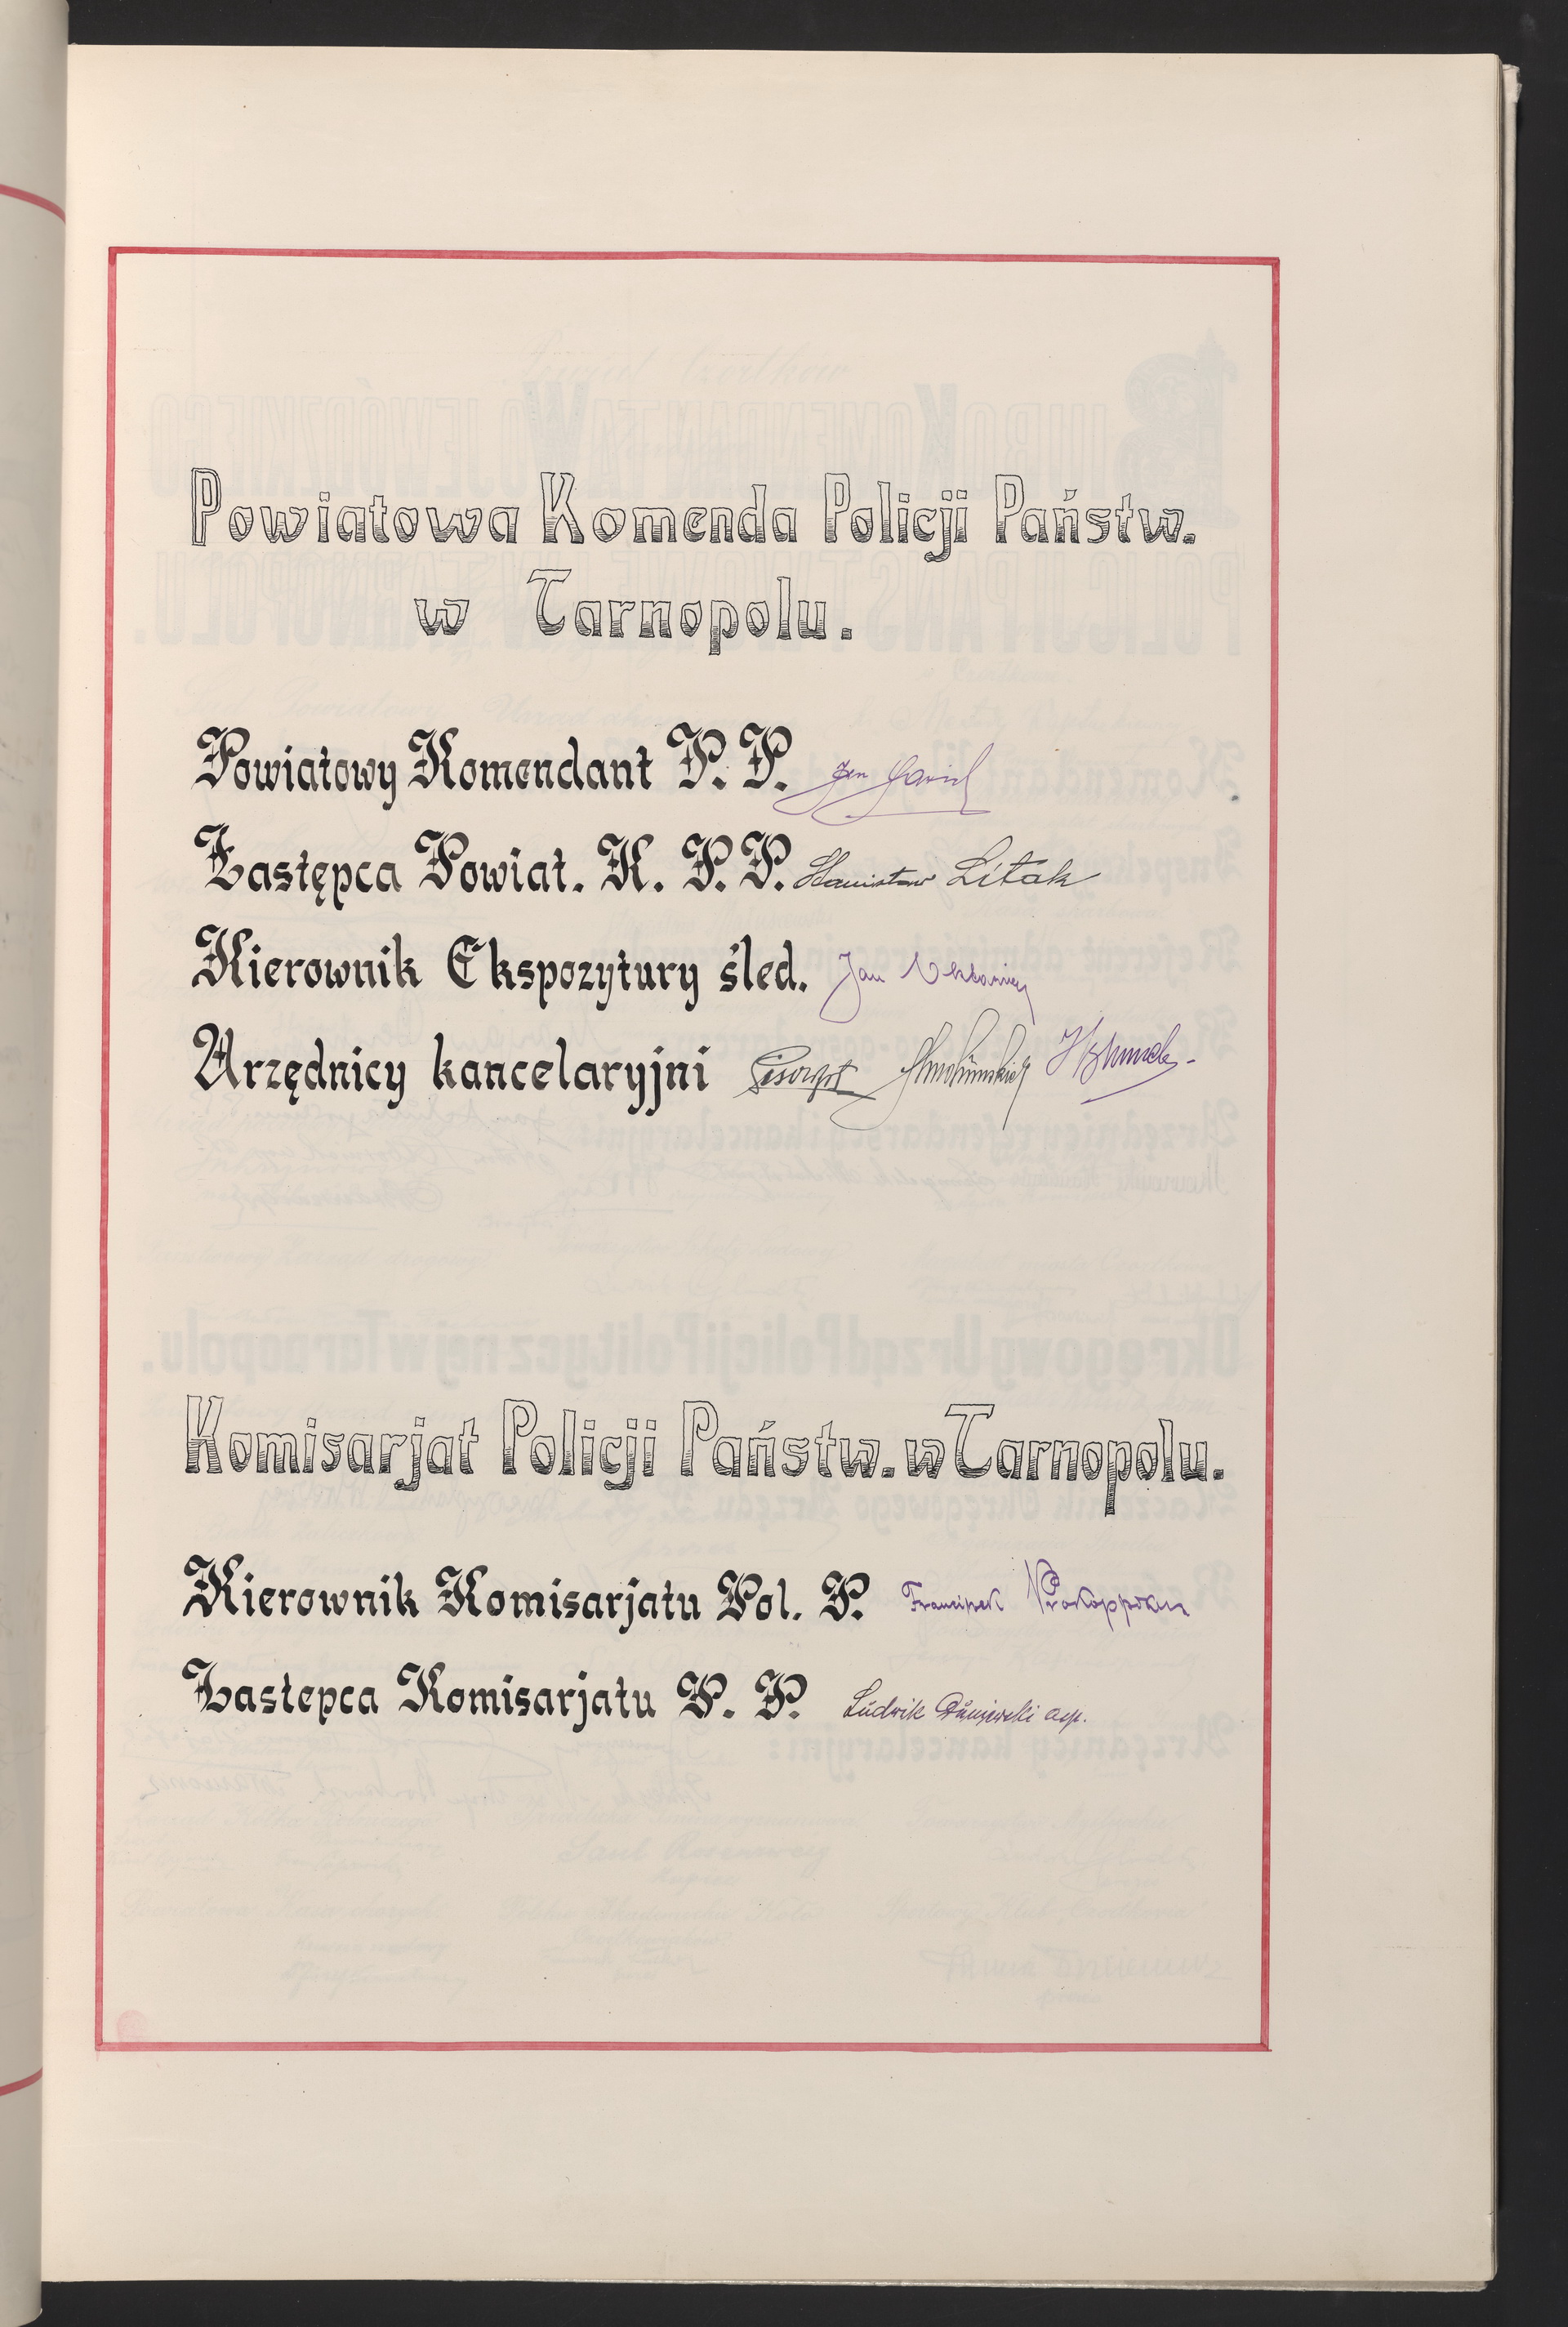 Powiatowa Komenda Policji Państw.
w Tarnopolu.
Powiatowy Komendant P. P. Jan
Zastępca Powiat. K. P. P. Stanisław Litak
Kierownik Ekspozytury śled. Jan
Urzędnicy kancelaryjni
Komisarjat Policji Państw. w Tarnopolu.
Kierownik Komisarjatu Pol. P. Franciszek
Zastepca Komisarjatu P. P. Ludwik asp.